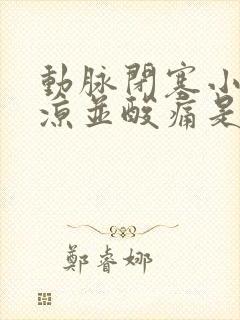 動脉閉塞小
涼並酸痛是
鄭睿娜